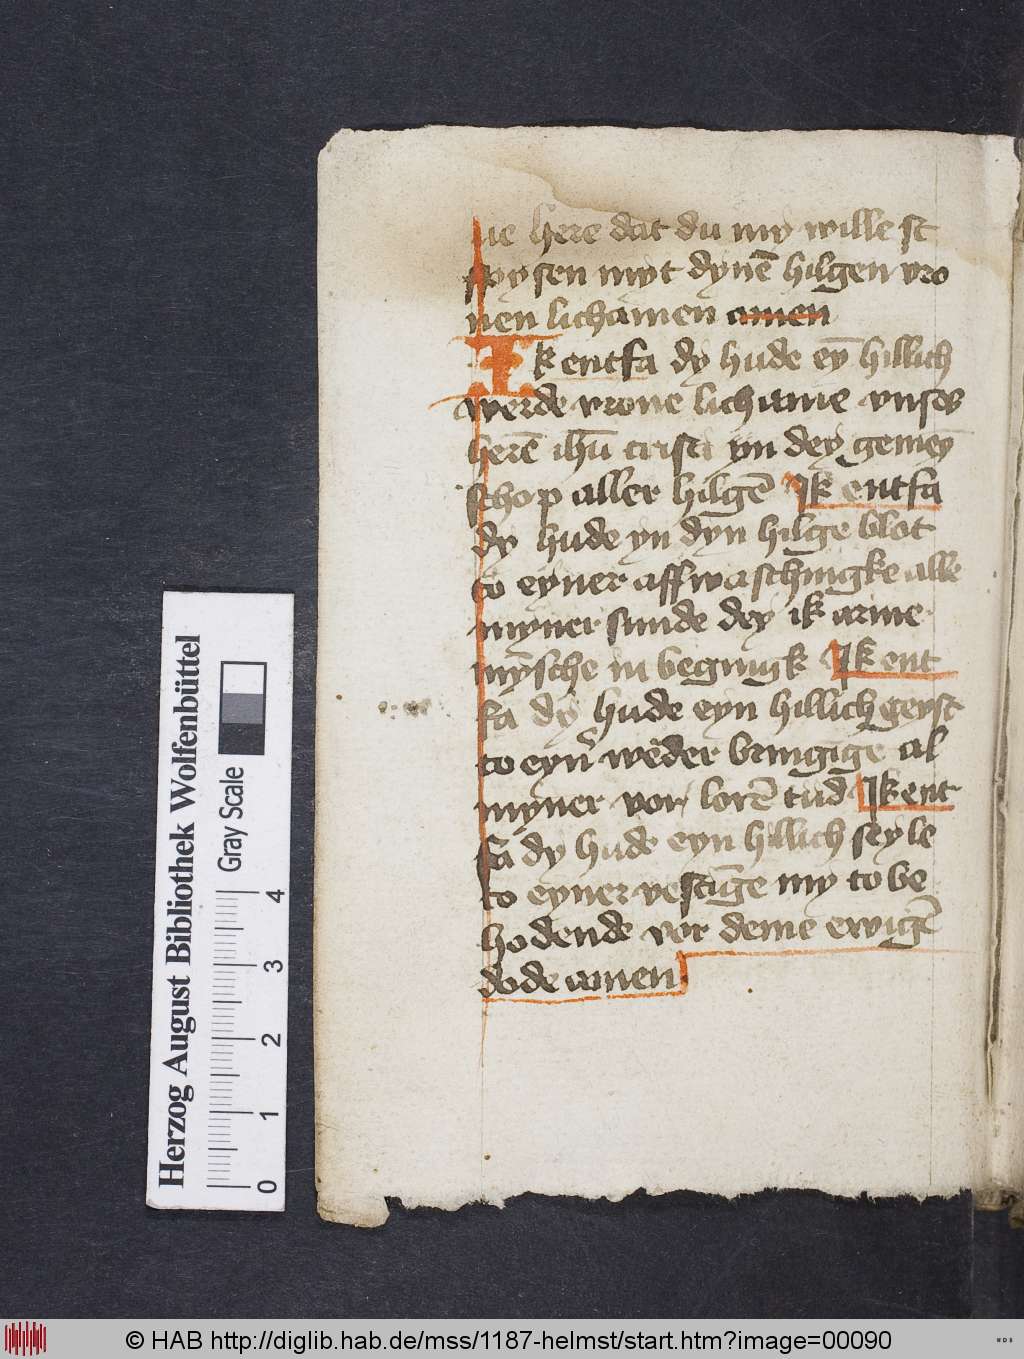 ue here dat du my wille st
spysen myt dynē hilgen vro
nen lichamen amen
Ik entfa dy hude eȳ hillich
werde vrone lichame vnses
herē ihū cristi yn dey gemey
schop aller hilgē Ik entfa
dy hude yn dyn hilge blot
to eyner affwaschingke alle
myner sunde dey ik arme
mȳsche in begynyk Ik ent
fa dy hude eyn hillich geyst
to eyn̄ wēder bringīge al
myner vor lorē tud Ik ent
fa dy hude eyn hillich seyle
to eyner vestīge my to be
hodende vor deme ewigē
dode amen
Herzog August Bibliothek Wolfenbüttel
Gray Scale
0 1 2 3 4
© HAB http://diglib.hab.de/mss/1187-helmst/start.htm?image=00090